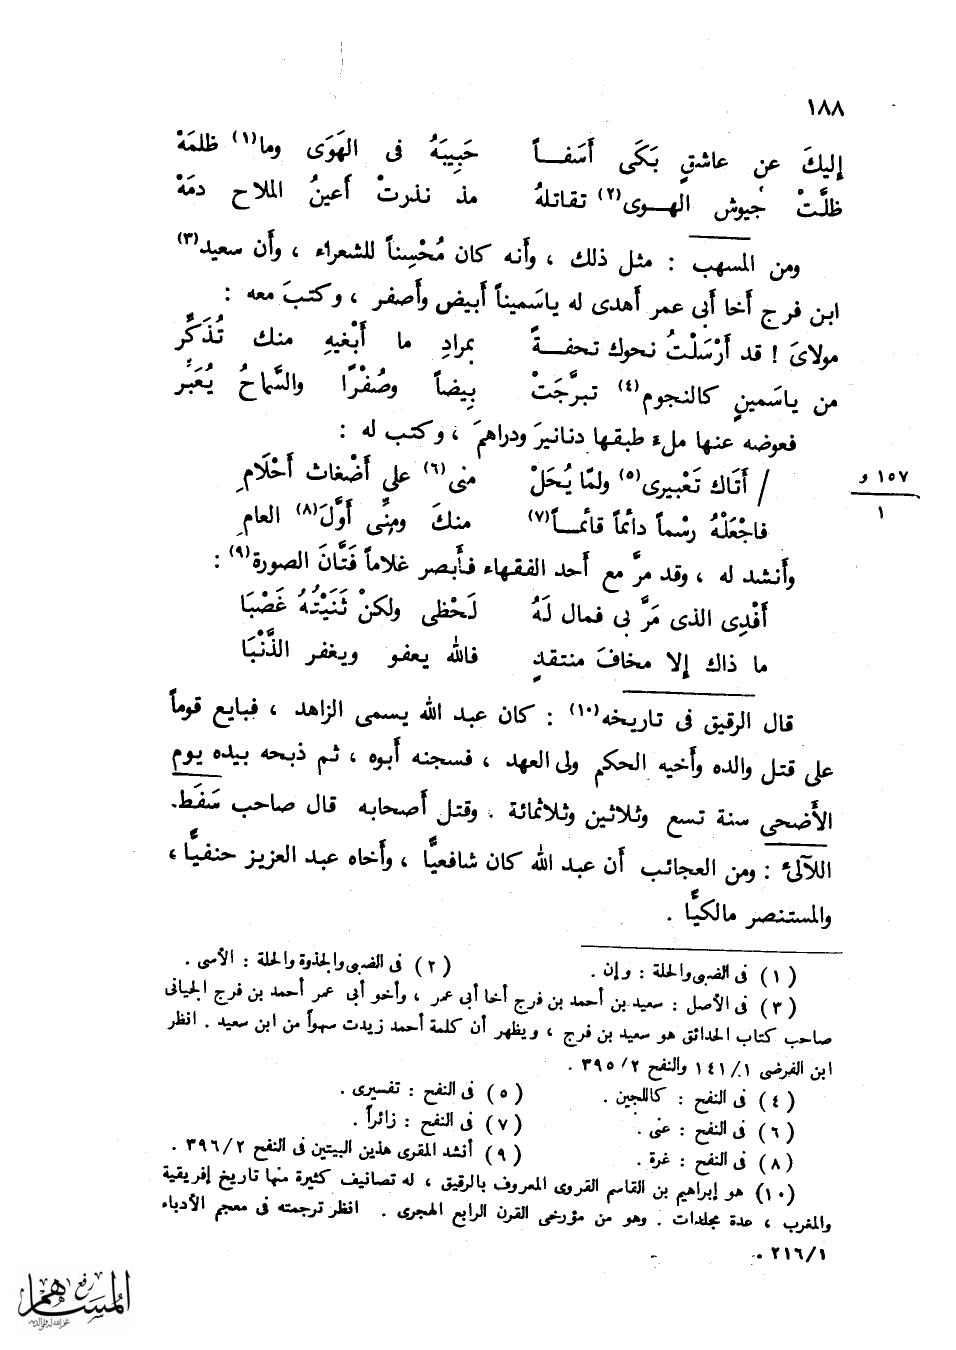 ١٨٨
إليكَ عن عاشقٍ بَكَى أَسَفـــاً حَبِيبَهُ فى الهَوَى وما(١) ظلمَهْ
ظلَّتْ جُيوش الهــوى(٢) تقاتلهُ مذ نذرتْ أَعينُ الملاح دمَهْ
ومن المسهب : مثل ذلك ، وأَنه كان مُحْسِناً للشعراء ، وأَن سعيد(٣)
ابن فرج أَخا أَبى عمر أَهدى له ياسَميناً أَبيض وأَصفر ، وكتبَ معه :
مولاىَ ! قد أَرْسَلْتُ نحوك تحفــةً بمرادِ ما أَبْغيهِ منك تُذَكِّر
من ياسَمينٍ كالنجوم(٤) تبرَّجَتْ بِيضاً وصُفْرًا والسَّماحُ يُعَبِّر
فعوضه عنها ملءَ طبقها دنانيرَ ودراهمَ ، وكتب له :
/ أَتَاك تَعْبيرى(٥) ولمّا يُحَلْ منى(٦) على أَضْغاث أَحْلَامِ
١٥٧ و
١
فاجْعَلْهُ رسْماً دائماً قائمــاً(٧) منكَ ومِنِّى أَوَّلَ(٨) العامِ
وأَنشد له ، وقد مرَّ مع أَحد الفقهاء فأَبصر غلاماً فَتَّانَ الصورة(٩) :
أَفْدِى الذى مَرَّ بى فمال لَهُ لَحْظى ولكنْ ثَنَيْتُهُ غَصْبَا
ما ذاك إلا مخافَ منتقدٍ فالله يعفو ويغفر الذَّنْبَا
قال الرقيق فى تاريخه(١٠) : كان عبد الله يسمى الزاهد ، فبايع قوماً
على قتل والده وأَخيه الحكم ولى العهد ، فسجنه أَبوه ، ثم ذبحه بيده يوم
الأَضحى سنة تسع وثلاثين وثلاثمائة . وقتل أَصحابه قال صاحب سَفَط
اللآلئ : ومن العجائب أَن عبد الله كان شافعيًّا ، وأَخاه عبد العزيز حنفيًّا ،
والمستنصر مالكيًّا .
(١) فى الضبى والحلة : وإن . (٢) فى الضبى والجذوة والحلة : الأسى .
(٣) فى الأصل : سعيد بن أحمد بن فرج أخا أبى عمر ، وأخو أبى عمر أحمد بن فرج الجيانى
صاحب كتاب الحدائق هو سعيد بن فرج ، ويظهر أن كلمة أحمد زيدت سهواً من ابن سعيد . انظر
ابن الفرضى ١/١٤١ والنفح ٢/٣٩٥ .
(٤) فى النفح : كاللجين . (٥) فى النفح : تفسيرى .
(٦) فى النفح : عنى . (٧) فى النفح : زائراً .
(٨) فى النفح : غرة . (٩) أنشد المقرى هذين البيتين فى النفح ٢/٣٩٦ .
(١٠) هو إبراهيم بن القاسم القروى المعروف بالرقيق ، له تصانيف كثيرة منها تاريخ إفريقية
والمغرب ، عدة مجلدات . وهو من مؤرخى القرن الرابع الهجرى . انظر ترجمته فى معجم الأدباء
١/٢١٦ .
رفع
المساهم